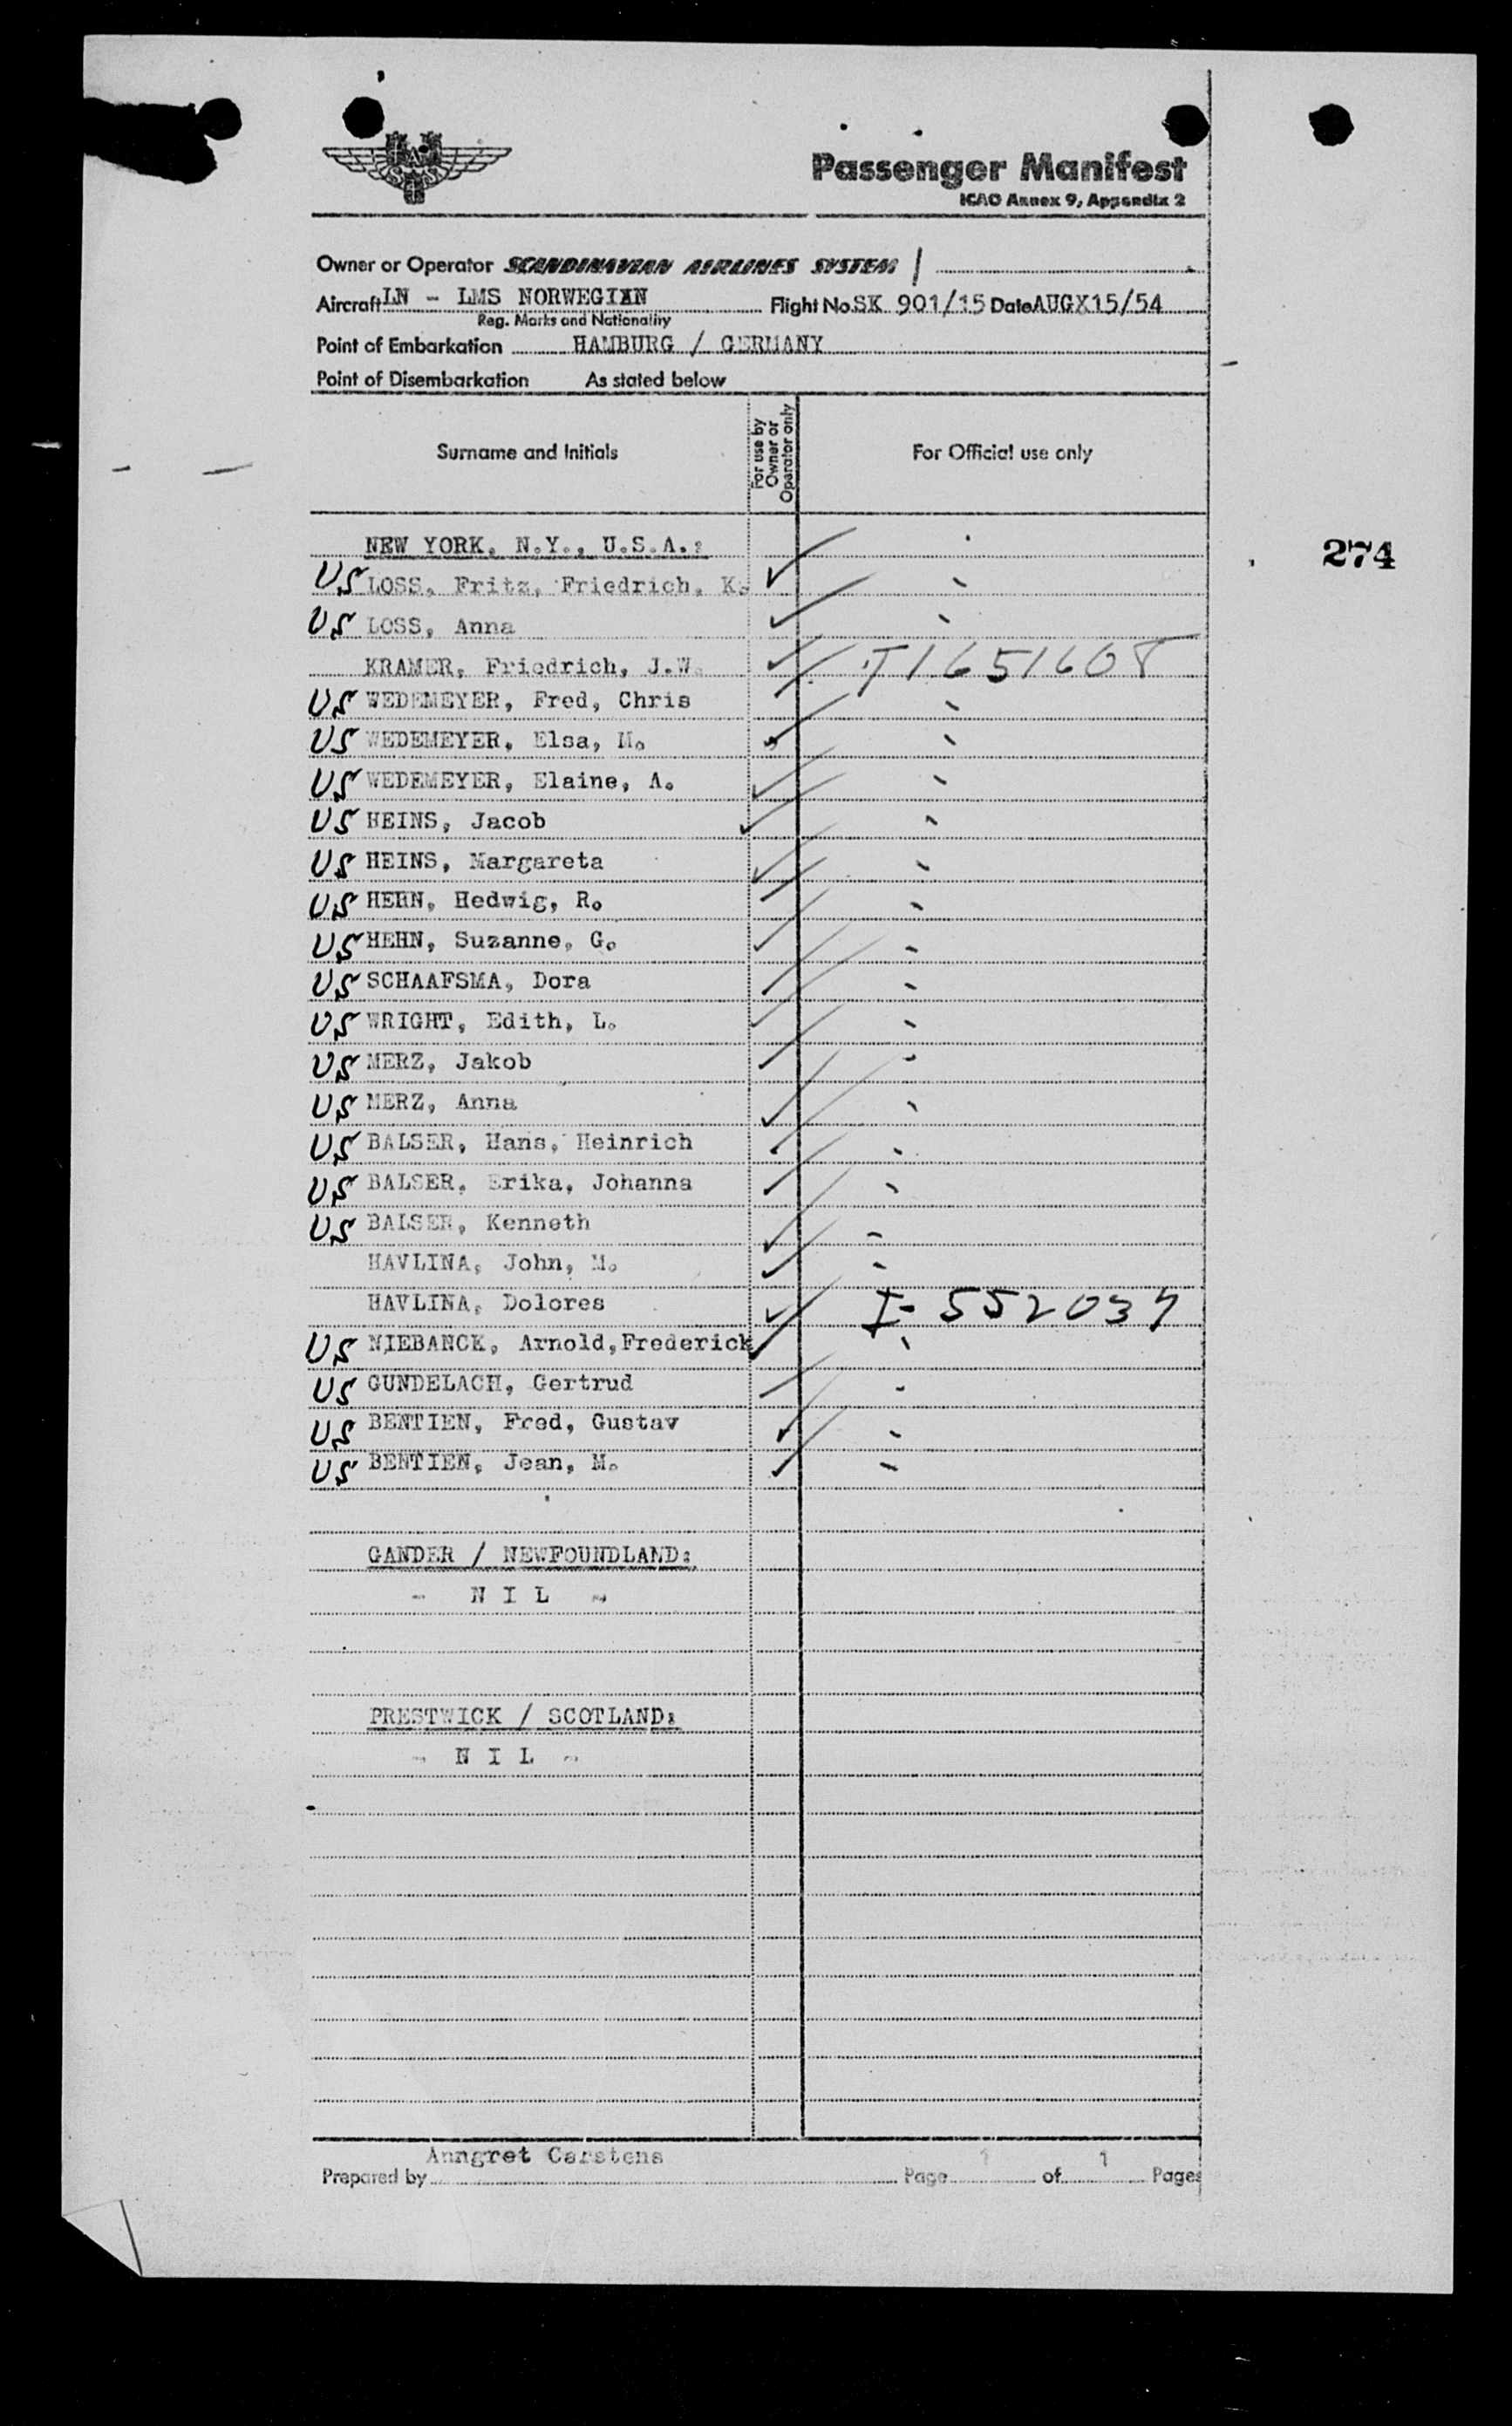 SAS
Passenger Manifest
ICAO Annex 9, Appendix 2
Owner or Operator SCANDINAVIAN AIRLINES SYSTEM
Aircraft LN - LMS NORWEGIAN Flight No. SK 901/15 Date AUGX15/54
Reg. Marks and Nationality
Point of Embarkation HAMBURG / GERMANY
Point of Disembarkation As stated below
Surname and Initials For use by Owner or Operator only For Official use only
NEW YORK, N.Y., U.S.A.:
274
US LOSS, Fritz, Friedrich, K.
US LOSS, Anna
KRAMER, Friedrich, J.W. T1651608
US WEDEMEYER, Fred, Chris
US WEDEMEYER, Elsa, M.
US WEDEMEYER, Elaine, A.
US HEINS, Jacob
US HEINS, Margareta
US HEHN, Hedwig, R.
US HEHN, Suzanne, G.
US SCHAAFSMA, Dora
US WRIGHT, Edith, L.
US MERZ, Jakob
US MERZ, Anna
US BALSER, Hans, Heinrich
US BALSER, Erika, Johanna
US BALSER, Kenneth
HAVLINA, John, M.
HAVLINA, Dolores I-552037
US NIEBANCK, Arnold,Frederick
US GUNDELACH, Gertrud
US BENTIEN, Fred, Gustav
US BENTIEN, Jean, M.
GANDER / NEWFOUNDLAND:
- N I L -
PRESTWICK / SCOTLAND:
- N I L -
Anngret Carstens
Prepared by Page 1 of 1 Pages